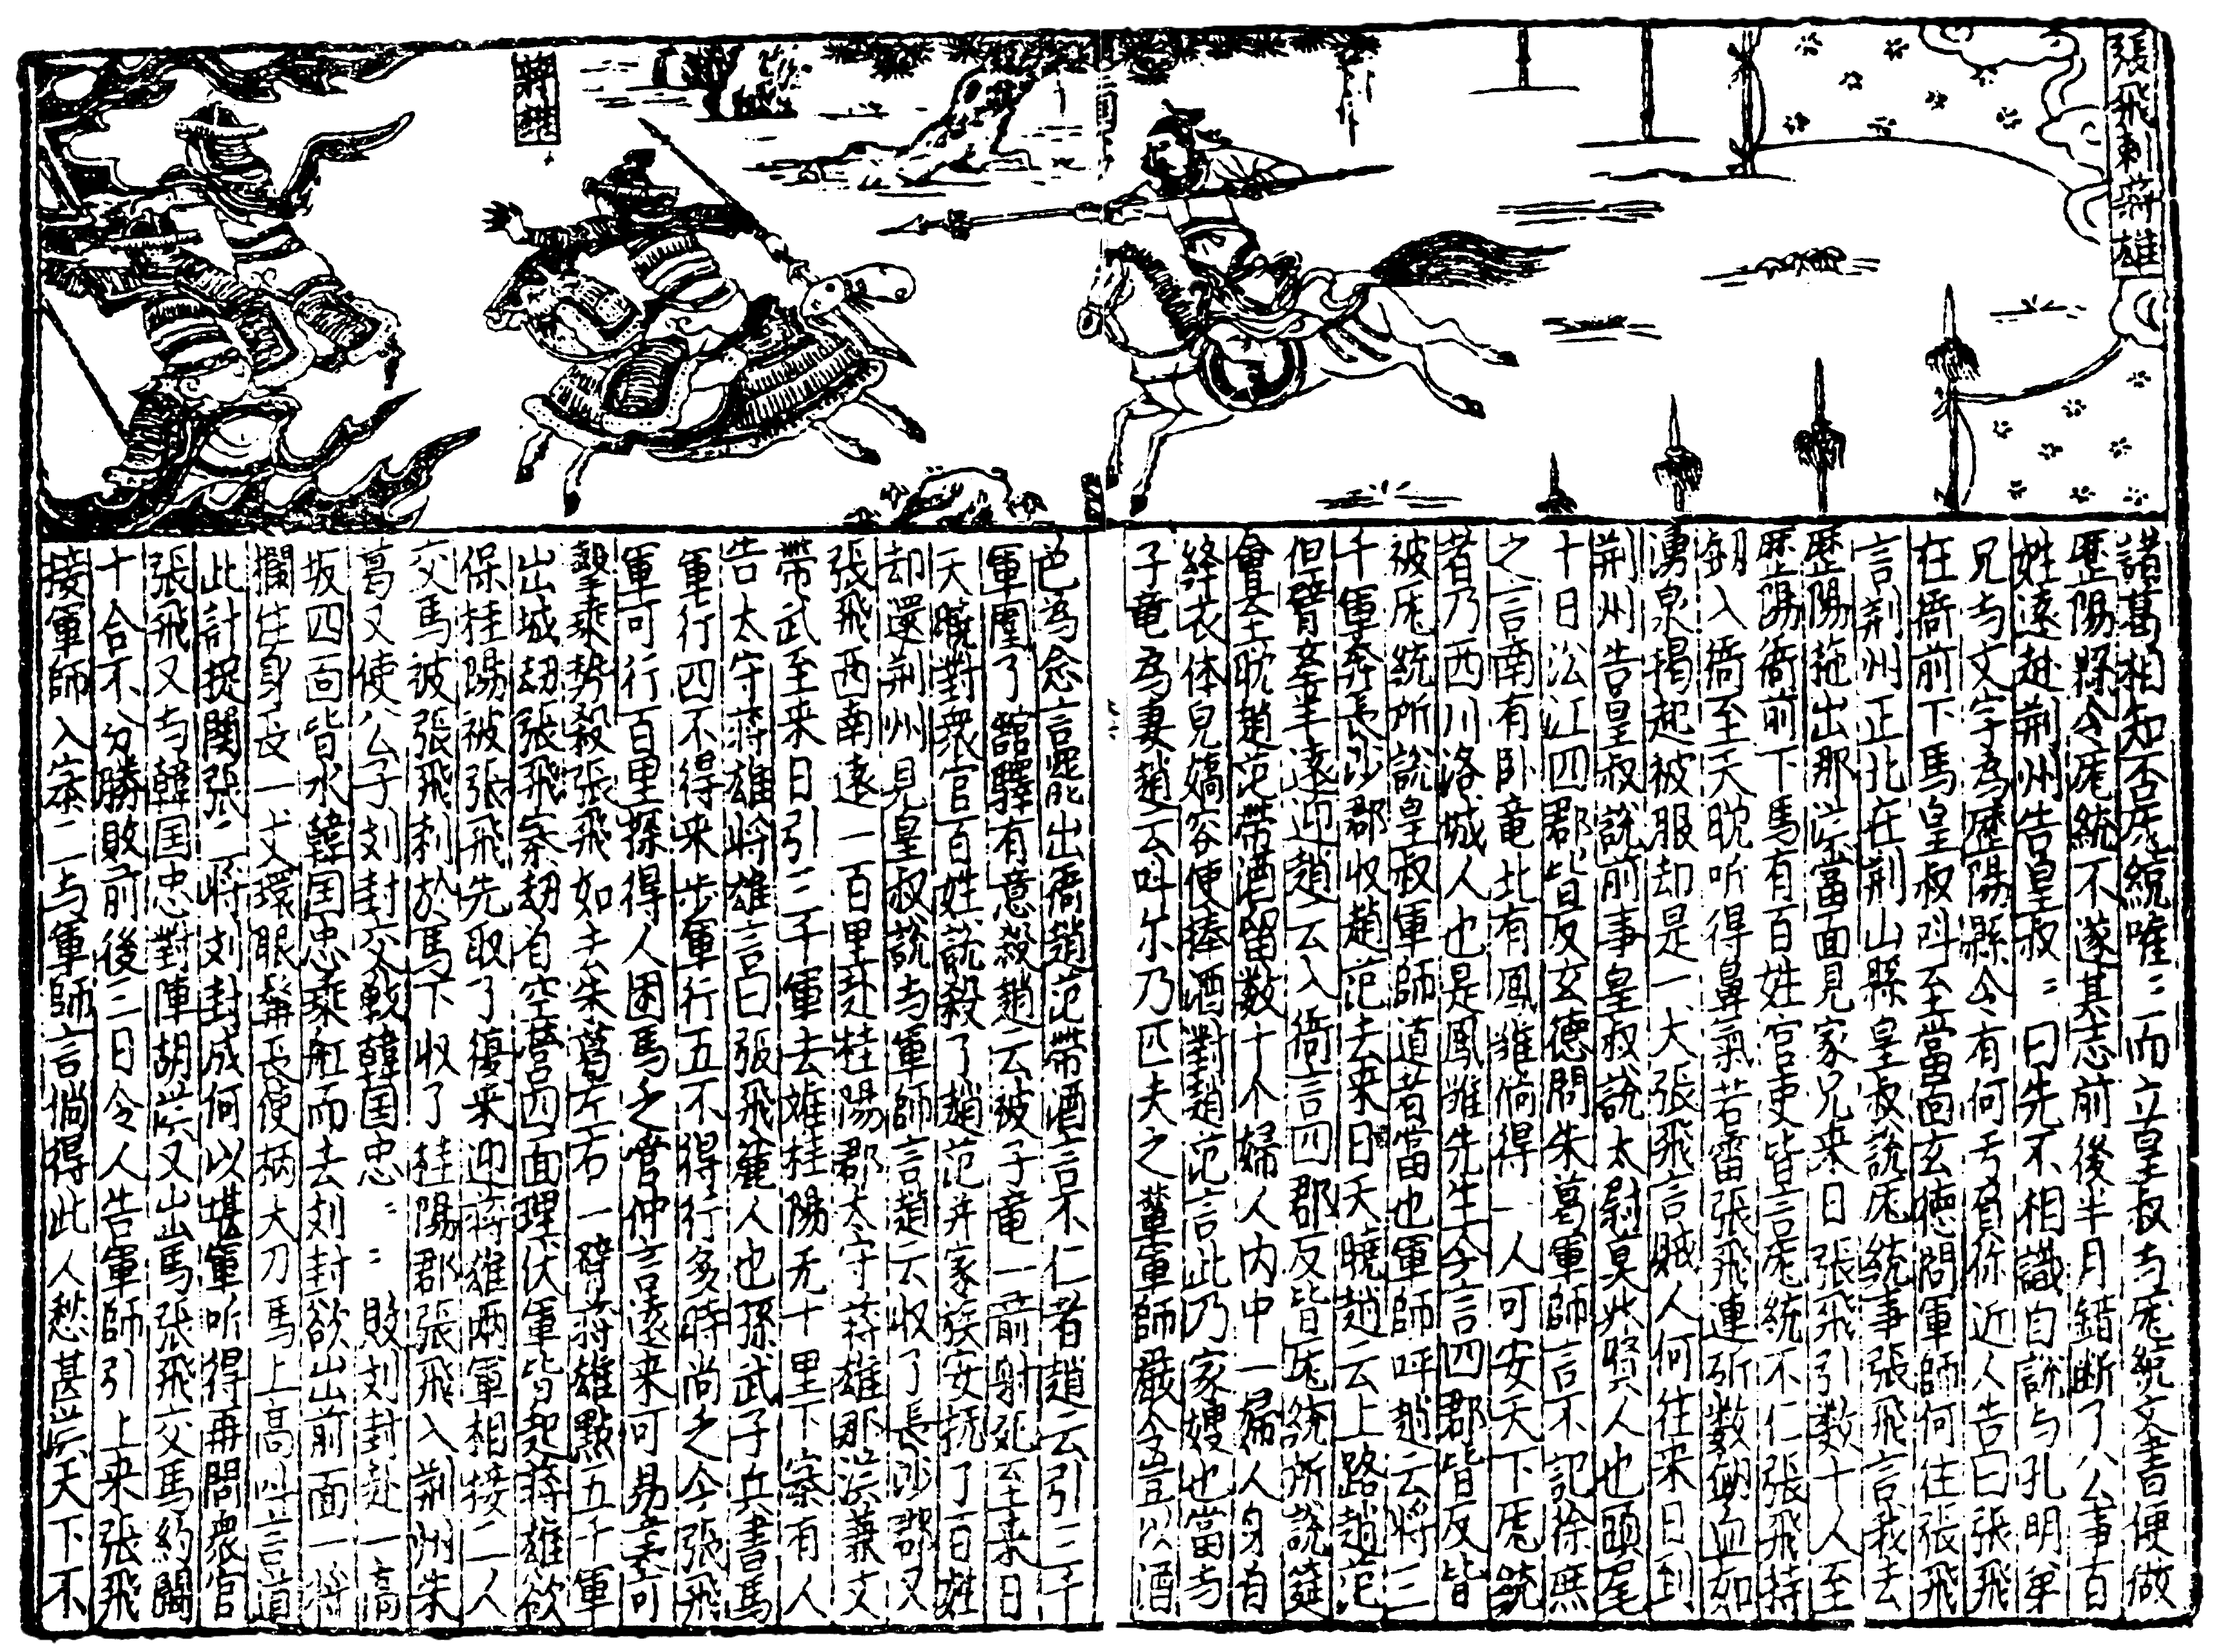 張飛刺蔣雄
蔣雄
諸葛相知否庞統唯〻而立皇叔与庞統文書便做
歷陽縣令庞統不遂其志前後半月錯断了公事百
姓遠赴荆州告皇叔〻曰先不相識自説与孔明弟
兄与文字為歷陽縣令有何亏負你近人告曰張飛
在衙前下馬皇叔呌至當面玄德問軍師何往張飛
言荆州正北在荆山縣皇叔説庞統事張飛言我去
歷陽拖出那漢當面見家兄来日張飛引数十人至
歷陽衙前下馬有百姓官吏皆言庞統不仁張飛持
劒入衙至天晚听得鼻氣若雷張飛連斫数劒血如
湧泉揭起被服却是一犬張飛言賊人何往来日到
荆州告皇叔説前事皇叔說太尉莫此賢人也頭尾
十日沿江四郡皆反玄德問朱葛軍師言不記徐庶
之言南有卧竜北有鳳雛倘得一人可安天下庞統
者乃西川洛城人也是鳳雛先生今言四郡皆反皆
被庞統所説皇叔軍師道若當也軍師呼趙云將三
千軍奔長沙郡收趙范去来日天曉趙云上路趙范
但臂牽羊遠迎趙云入衙言四郡反皆庞統所說筵
會至晚趙范帶酒留数十个婦人内中一婦人身自
終衣体皃嬌容使捧酒對趙范言此乃家嫂也當与
子竜為妻趙云呌尓乃匹夫之輩軍師嚴令豈以酒
色為念言罷出衙趙范帶酒言不仁者趙云引三千
軍圍了舘驛有意殺趙云被子竜一箭射死至来日
天曉對衆官百姓說殺了趙范并家族安撫了百姓
却還荆州見皇叔說与軍師言趙云收了長沙郡又
張飛西南遠一百里赴桂陽郡太守蔣雄那漢兼文
帶武至来日引三千軍去離桂陽无十里下寨有人
告太守蔣雄將雄言曰張飛麄人也孫武子兵書馬
軍行四不得来步軍行五不得行多時尚乏今張飛
軍可行百里探得人困馬乏管仲言遠来可易妄可
擊乘勢殺張飛如去朱葛左右一臂蔣雄點五千軍
出城刼張飛寨刼自空營四面埋伏軍皆起蔣雄欲
保桂陽被張飛先取了復来迎蔣雄兩軍相接二人
交馬被張飛刺於馬下收了桂陽郡張飛入荆州朱
葛又使公子刘封交戰韓国忠〻〻敗刘封赴一高
坂四面皆水韓国忠乘舡而去刘封欲出前面一將
攔住身長一丈環眼髯長使柄大刀馬上高呌言道
此計捉關張二將刘封成何以堪軍听得再問衆官
張飛又与韓国忠對陣胡漢又出馬張飛交馬約闘
十合不分勝敗前後三日令人告軍師引上来張飛
接軍師入寨〻与軍師言倘得此人愁甚漢天下不